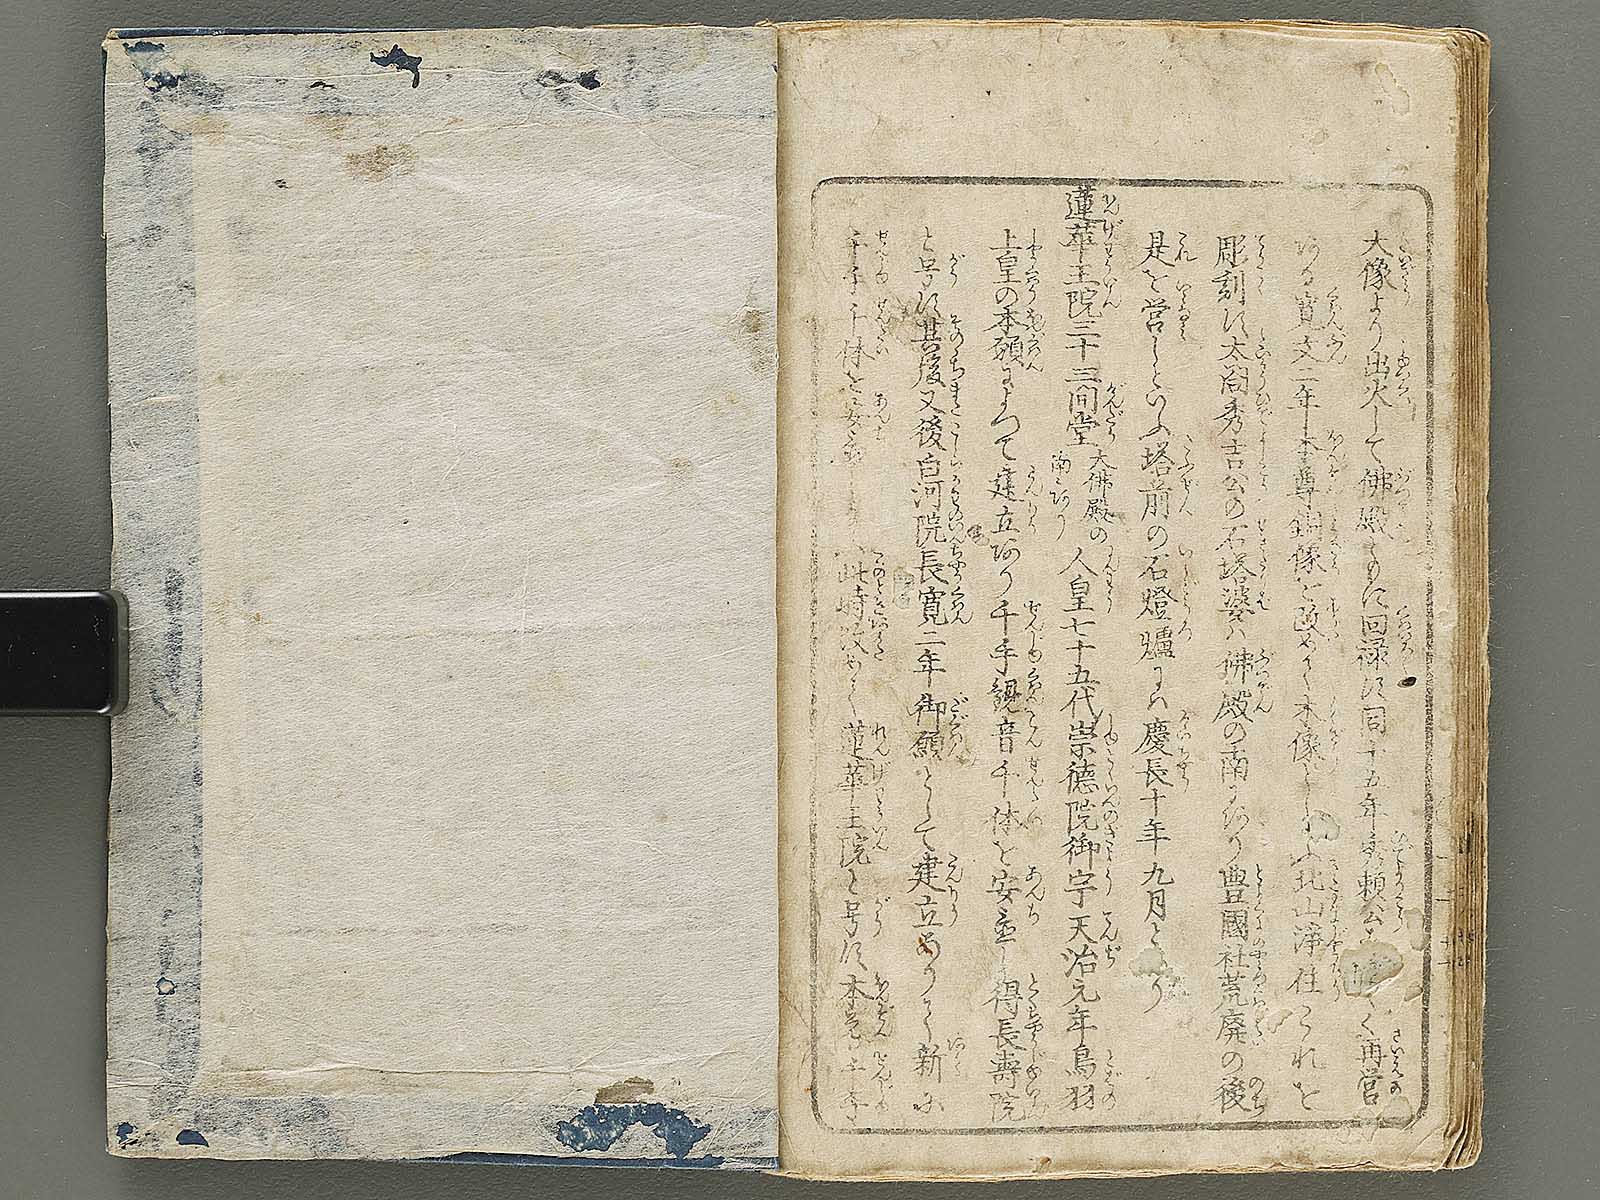 大像より出火して佛殿ともに回禄す同十五年秀頼公再営
あり寛文二年本尊銅像を改めて木像とし給ふ北山浄住これを
彫刻す太閤秀吉公の石塔婆ハ佛殿の南にあり豊國社荒廃の後
是を営しといふ塔前の石燈爐にハ慶長十年九月とあり
蓮華王院三十三間堂 大佛殿の南にあり 人皇七十五代崇徳院御宇天治元年鳥羽
上皇の本願によつて建立あり千手観音千体を安置し得長壽院
と号す其後又後白河院長寛二年御願として建立ありて新に
千手千体を安置し 此時改めて蓮華王院と号す本尊千手